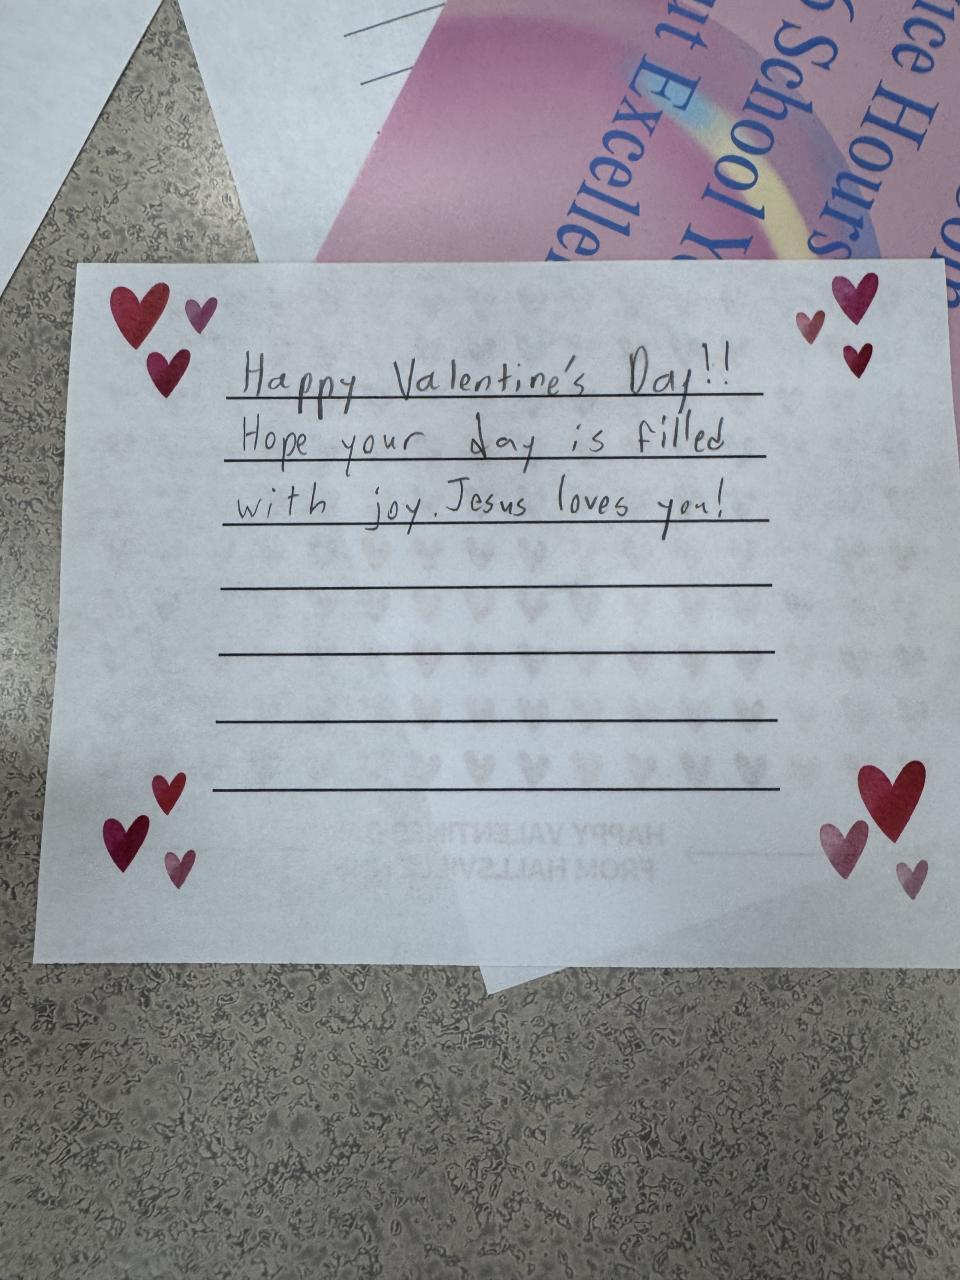 ut Excelle
6 School Y
ice Hours
Happy Valentine's Day!!
Hope your day is filled
with joy. Jesus loves you!
HAPPY VALENTINES D
FROM HALLSVILLE